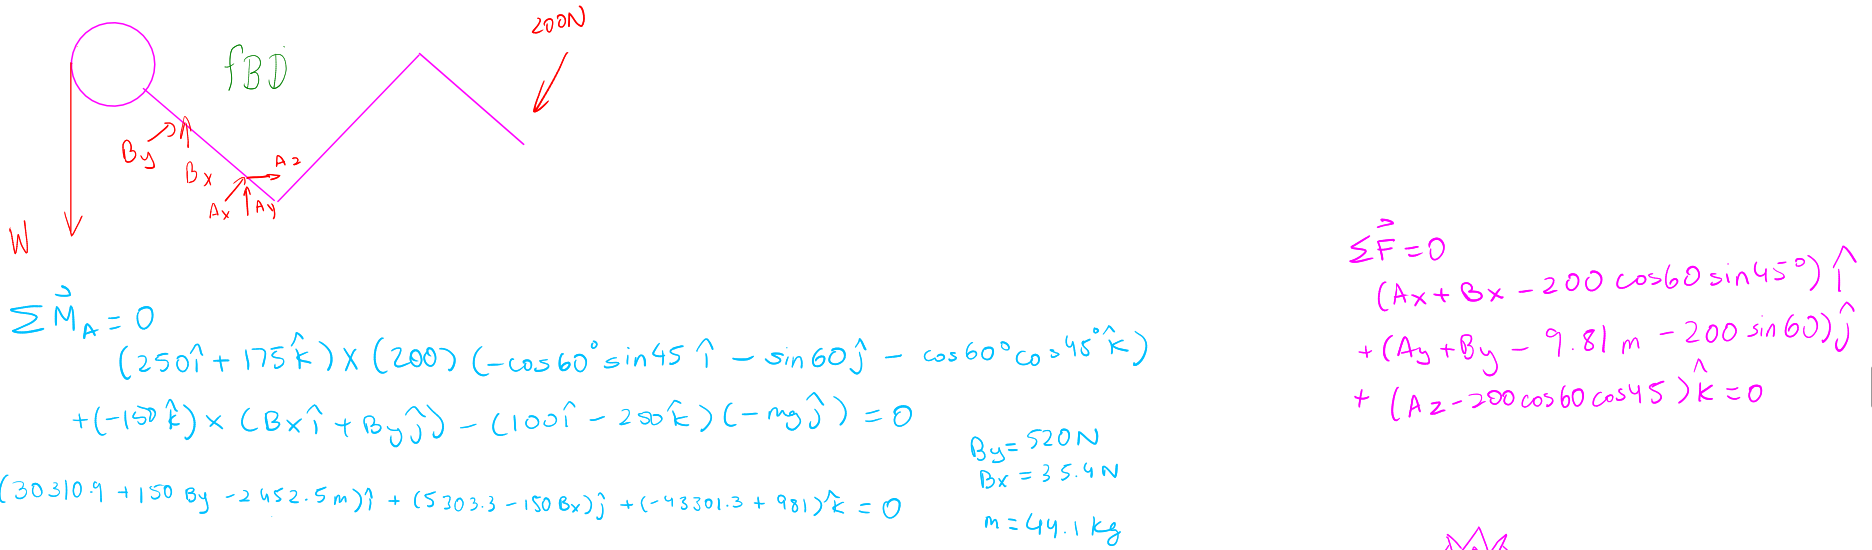 200N
fBD
By
Bx
Az
Ax
Ay
W
ΣM⃗_A = 0
(250î + 175k̂) × (200) (-cos60° sin45 î - sin60 ĵ - cos60° cos45° k̂)
+(-150 k̂) × (Bx î + By ĵ) - (100î - 250k̂) (-mg ĵ) = 0
(30310.9 + 150 By - 2452.5m)î + (5303.3 - 150 Bx)ĵ + (-43301.3 + 981)k̂ = 0
By = 520N
Bx = 35.4N
m = 44.1 kg
ΣF⃗ = 0
(Ax + Bx - 200 cos60 sin45°) î
+ (Ay + By - 9.81 m - 200 sin60) ĵ
+ (Az - 200 cos60 cos45) k̂ = 0